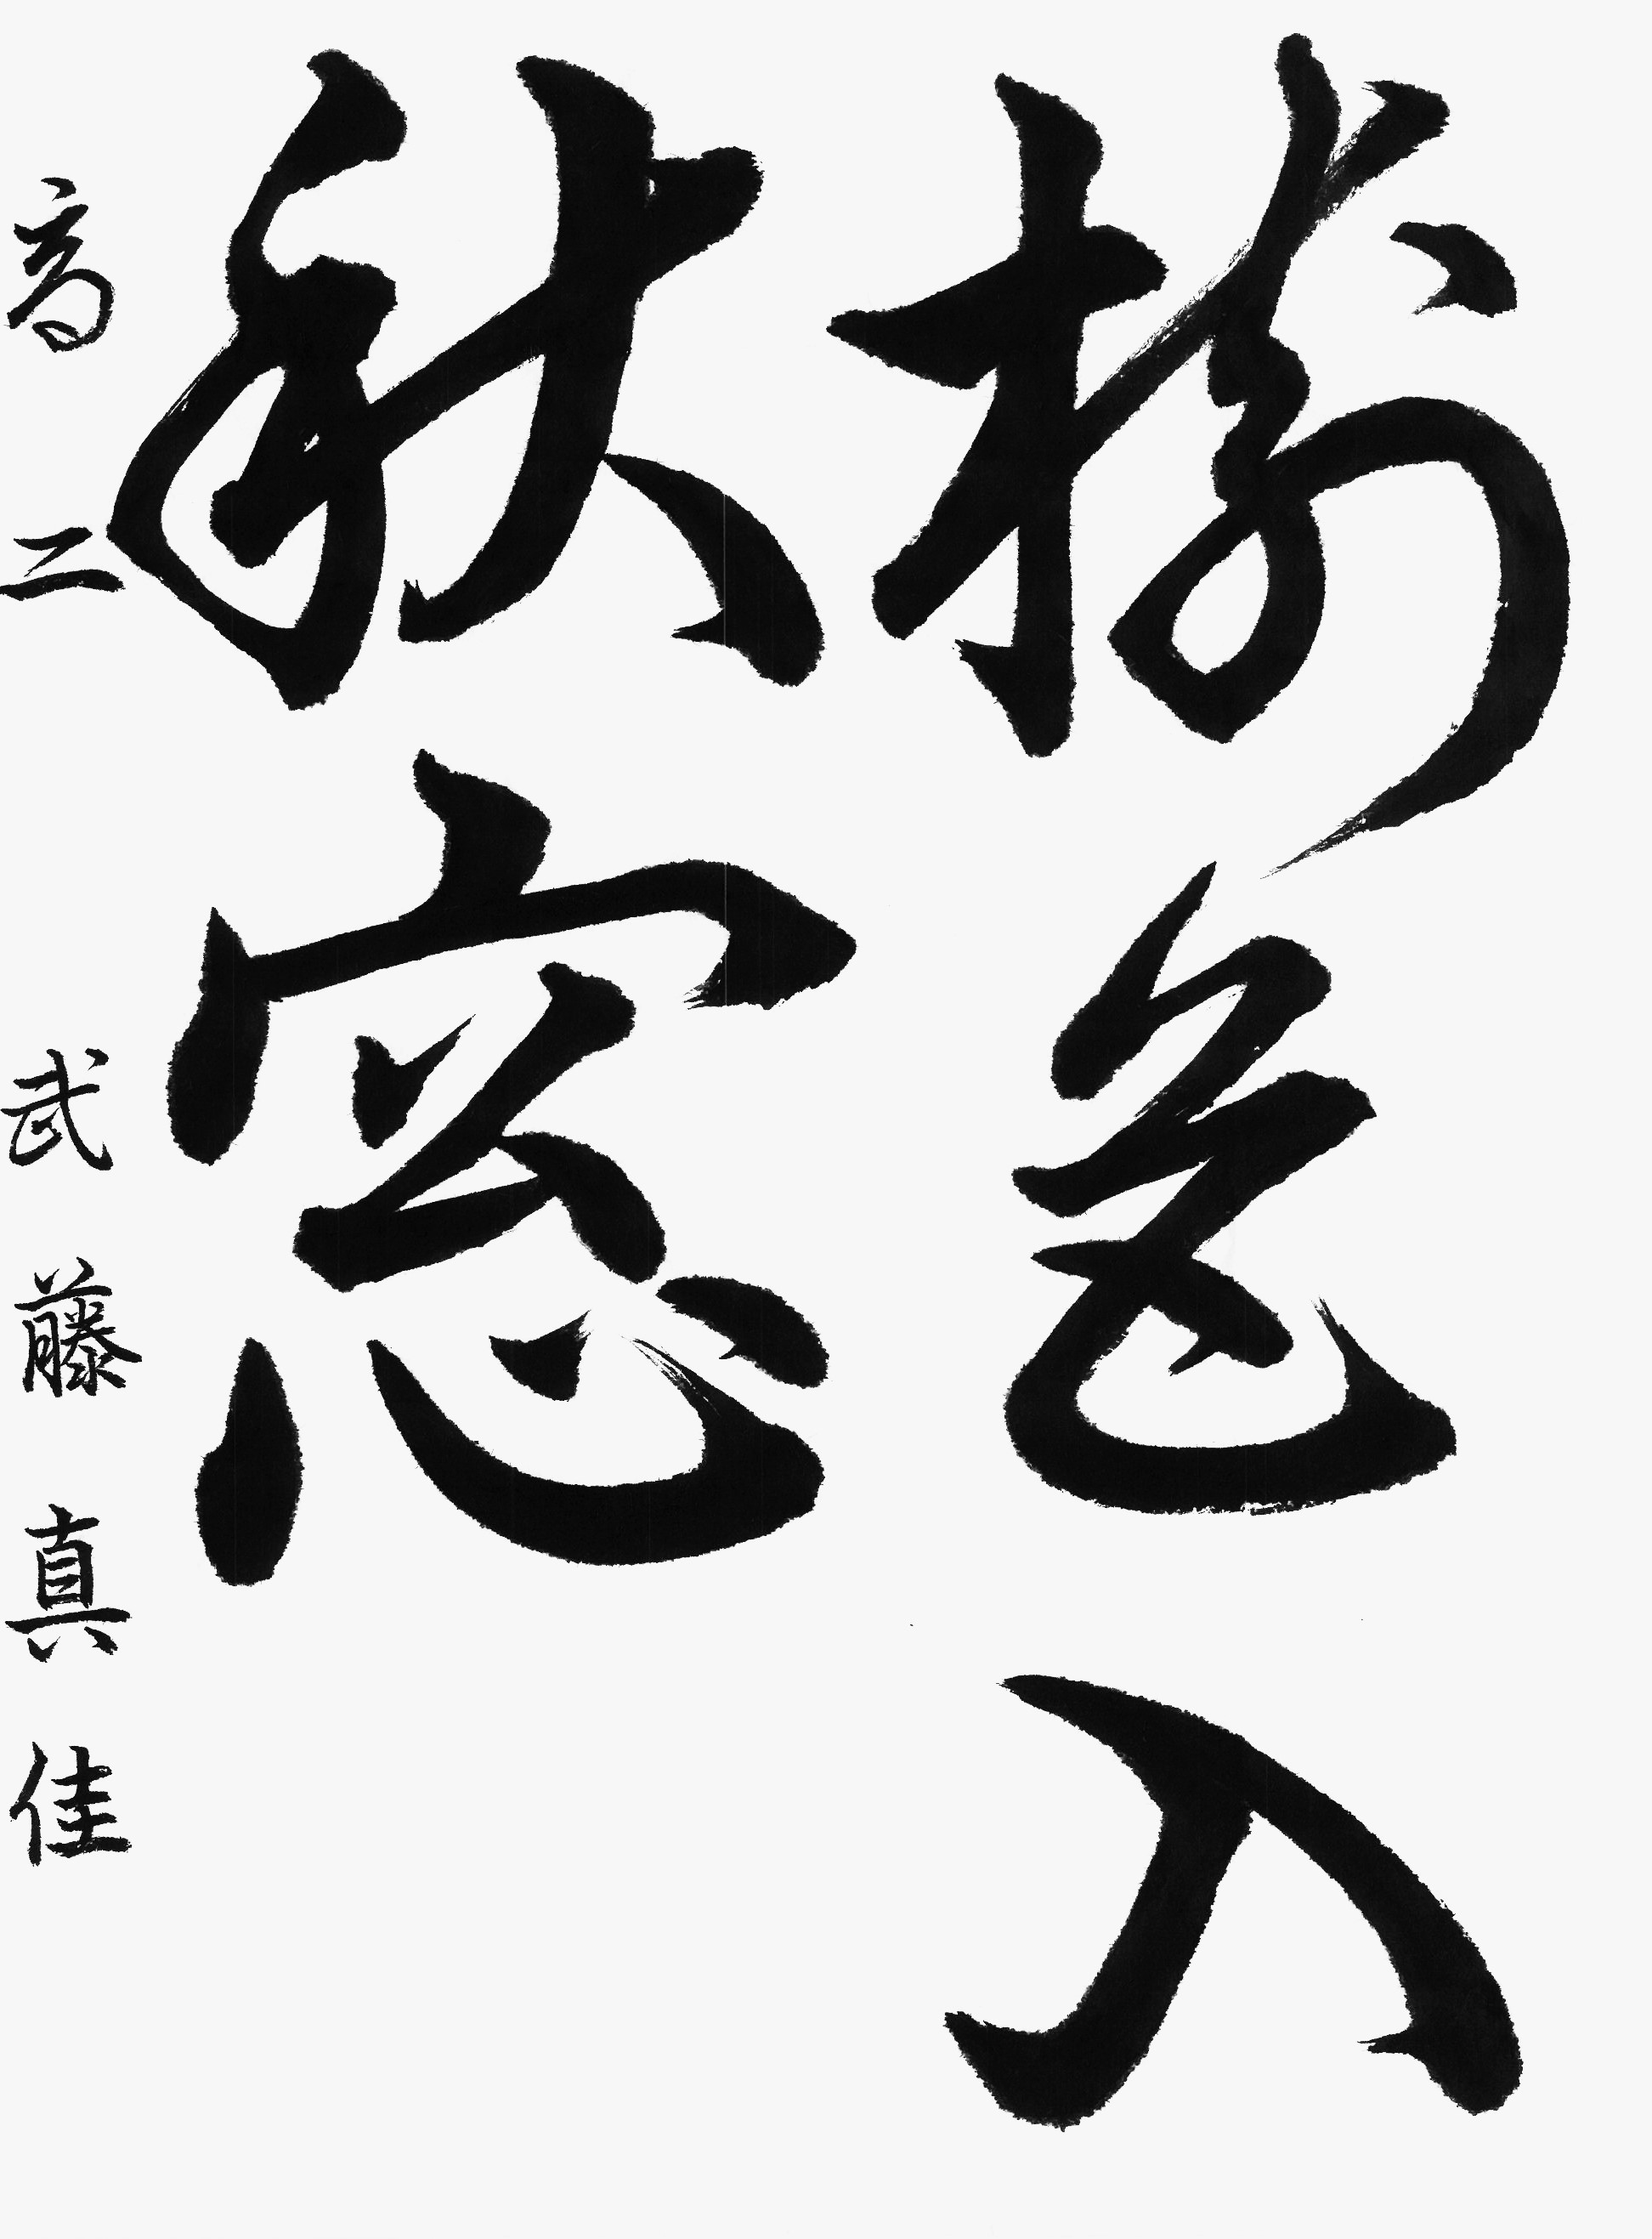 樹色入
秋窓
高二 武藤真佳